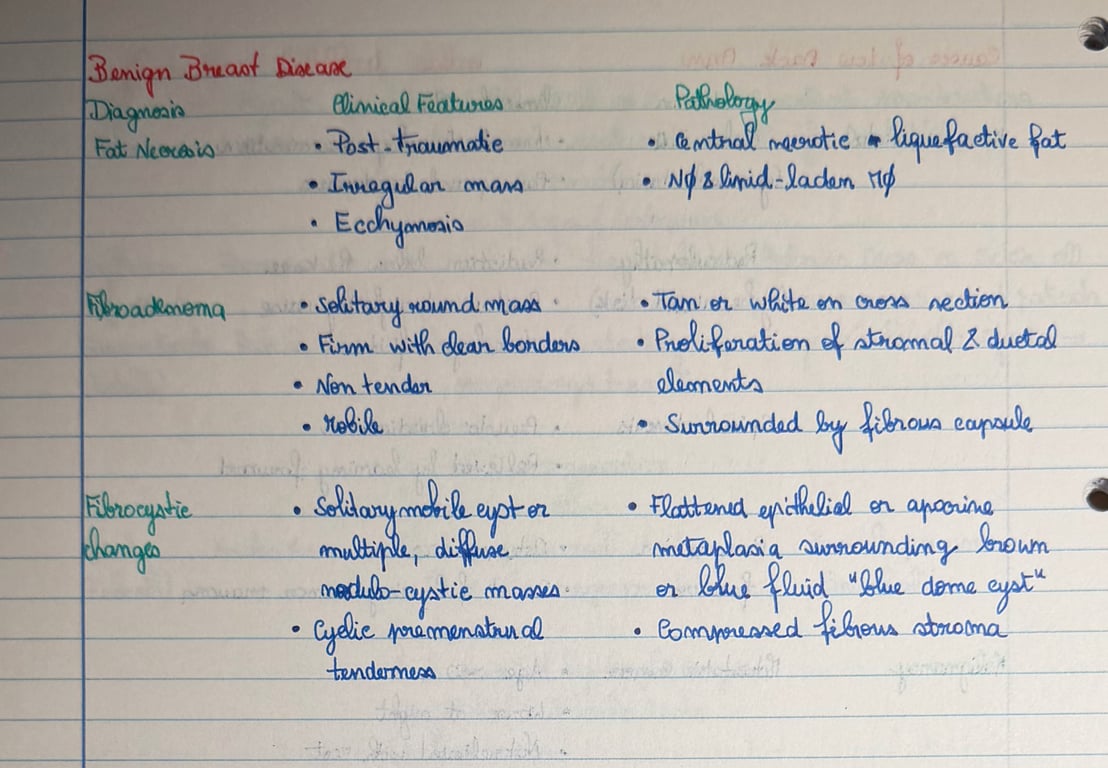 Benign Breast Disease
Diagnosis Clinical Features Pathology
Fat Necrosis • Post-traumatic • Central necrotic liquefactive fat
• Irregular mass • Nφ & lipid-laden Mφ
• Ecchymosis
Fibroadenoma • Solitary round mass • Tan or white on cross section
• Firm with clear borders • Proliferation of stromal & ductal
• Non tender elements
• Mobile • Surrounded by fibrous capsule
Fibrocystic • Solitary mobile cyst or • Flattened epithelial or apocrine
changes multiple, diffuse metaplasia surrounding brown
nodulo-cystic masses. or blue fluid "blue dome cyst"
• Cyclic premenstrual • Compressed fibrous stroma
tenderness